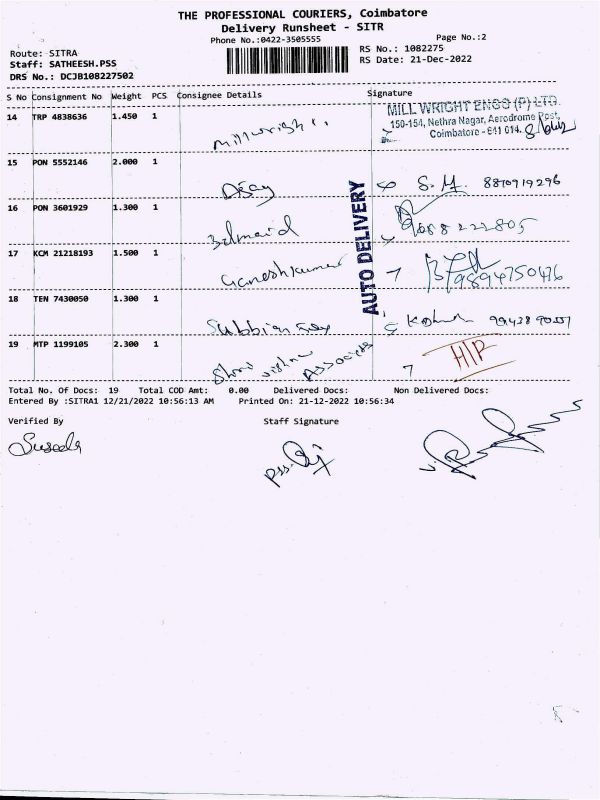 THE PROFESSIONAL COURIERS, Coimbatore
Delivery Runsheet - SITR
Phone No.:0422-3505555
Page No.:2
Route: SITRA
RS No.: 1082275
Staff: SATHEESH.PSS
RS Date: 21-Dec-2022
DRS No.: DCJB108227502
S No Consignment No Weight PCS Consignee Details Signature
14 TRP 4838636 1.450 1
MILL WRIGHT ENGG (P) LTD.
150-154, Nethra Nagar, Aerodrome Post,
Coimbatore - 641 014.
15 PON 5552146 2.000 1 S.M. 8870919296
16 PON 3601929 1.300 1
17 KCM 21218193 1.500 1 Ganeshkumar 9894750476
18 TEN 7430050 1.300 1
19 MTP 1199105 2.300 1
AUTO DELIVERY
Total No. Of Docs: 19 Total COD Amt: 0.00 Delivered Docs: Non Delivered Docs:
Entered By :SITRA1 12/21/2022 10:56:13 AM Printed On: 21-12-2022 10:56:34
Verified By Staff Signature